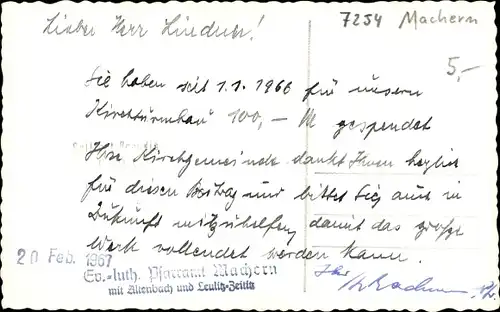 Lieber Herr Lindner!
7254 Machern
5,-
Sie haben seit 1.1.1966 für unsern
Kirchturmbau 100,- M gespendet
Ihre Kirchgemeinde dankt Ihnen herzlich
für diesen Beitrag und bittet Sie, auch in
Zukunft mitzuhelfen, damit das große
Werk vollendet werden kann.
20. Feb. 1967
Ihr
Ev.-luth. Pfarramt Machern
mit Altenbach und Leulitz-Zeititz